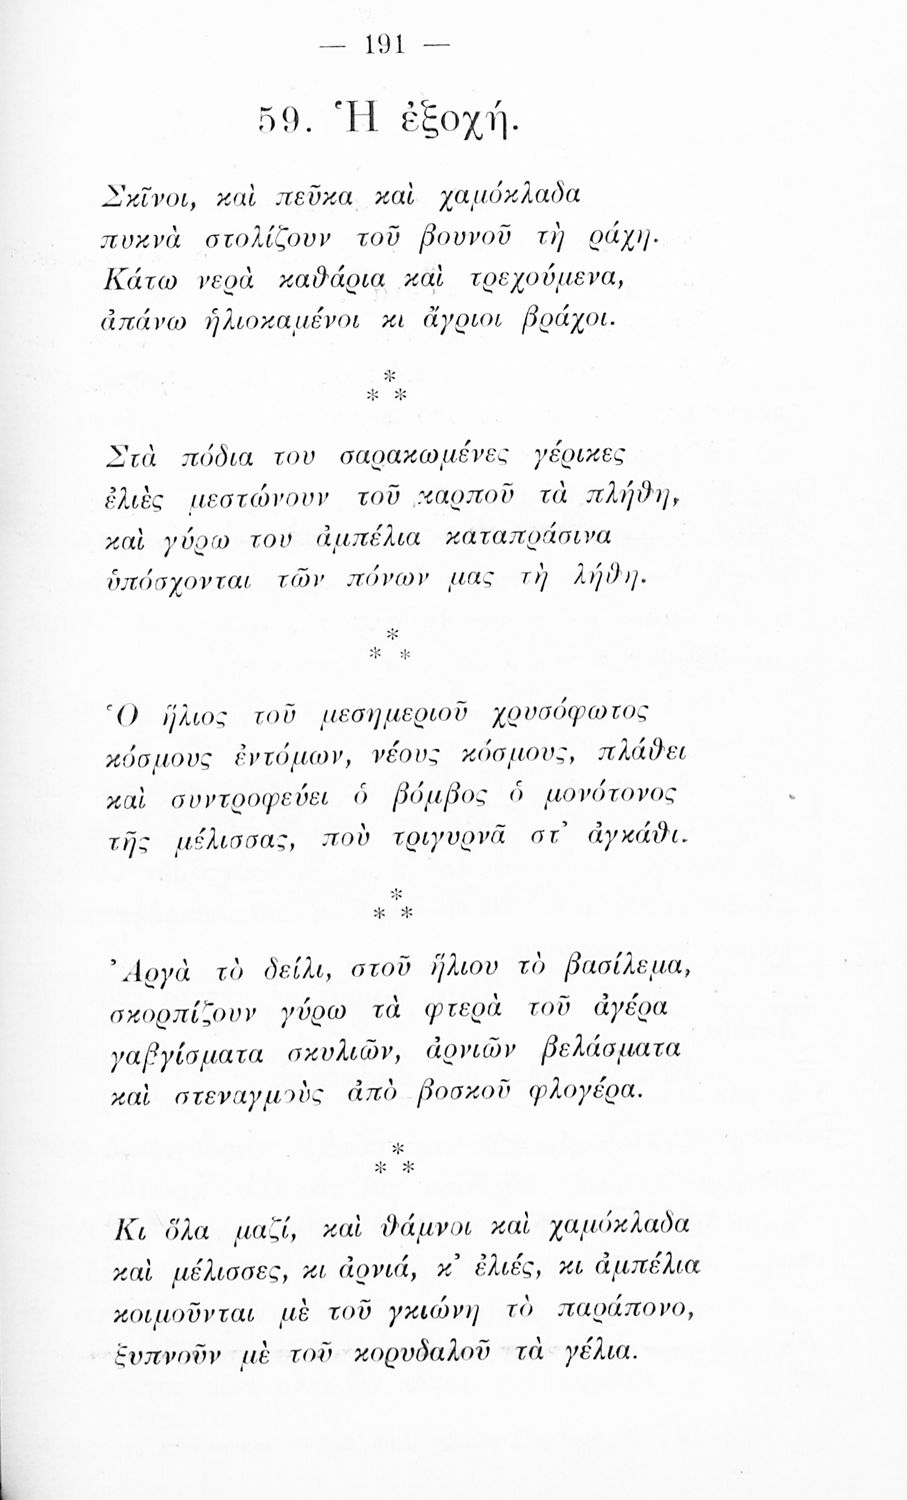 — 191 —
59. Ἡ ἐξοχή.
Σκῖνοι, καὶ πεῦκα καὶ χαμόκλαδα
πυκνὰ στολίζουν τοῦ βουνοῦ τὴ ράχη.
Κάτω νερὰ καθάρια καὶ τρεχούμενα,
ἀπάνω ἡλιοκαμένοι κι ἄγριοι βράχοι.
*
* *
Στὰ πόδια του σαρακωμένες γέρικες
ἐλιὲς μεστώνουν τοῦ καρποῦ τὰ πλήθη,
καὶ γύρω του ἀμπέλια καταπράσινα
ὑπόσχονται τῶν πόνων μας τὴ λήθη.
*
* *
Ὁ ἥλιος τοῦ μεσημεριοῦ χρυσόφωτος
κόσμους ἐντόμων, νέους κόσμους, πλάθει
καὶ συντροφεύει ὁ βόμβος ὁ μονότονος
τῆς μέλισσας, ποὺ τριγυρνᾶ στ’ ἀγκάθι.
*
* *
Ἀργὰ τὸ δείλι, στοῦ ἥλιου τὸ βασίλεμα,
σκορπίζουν γύρω τὰ φτερὰ τοῦ ἀγέρα
γαβγίσματα σκυλιῶν, ἀρνιῶν βελάσματα
καὶ στεναγμοὺς ἀπὸ βοσκοῦ φλογέρα.
*
* *
Κι ὅλα μαζί, καὶ θάμνοι καὶ χαμόκλαδα
καὶ μέλισσες, κι ἀρνιά, κ’ ἐλιές, κι ἀμπέλια
κοιμοῦνται μὲ τοῦ γκιώνη τὸ παράπονο,
ξυπνοῦν μὲ τοῦ κορυδαλοῦ τὰ γέλια.